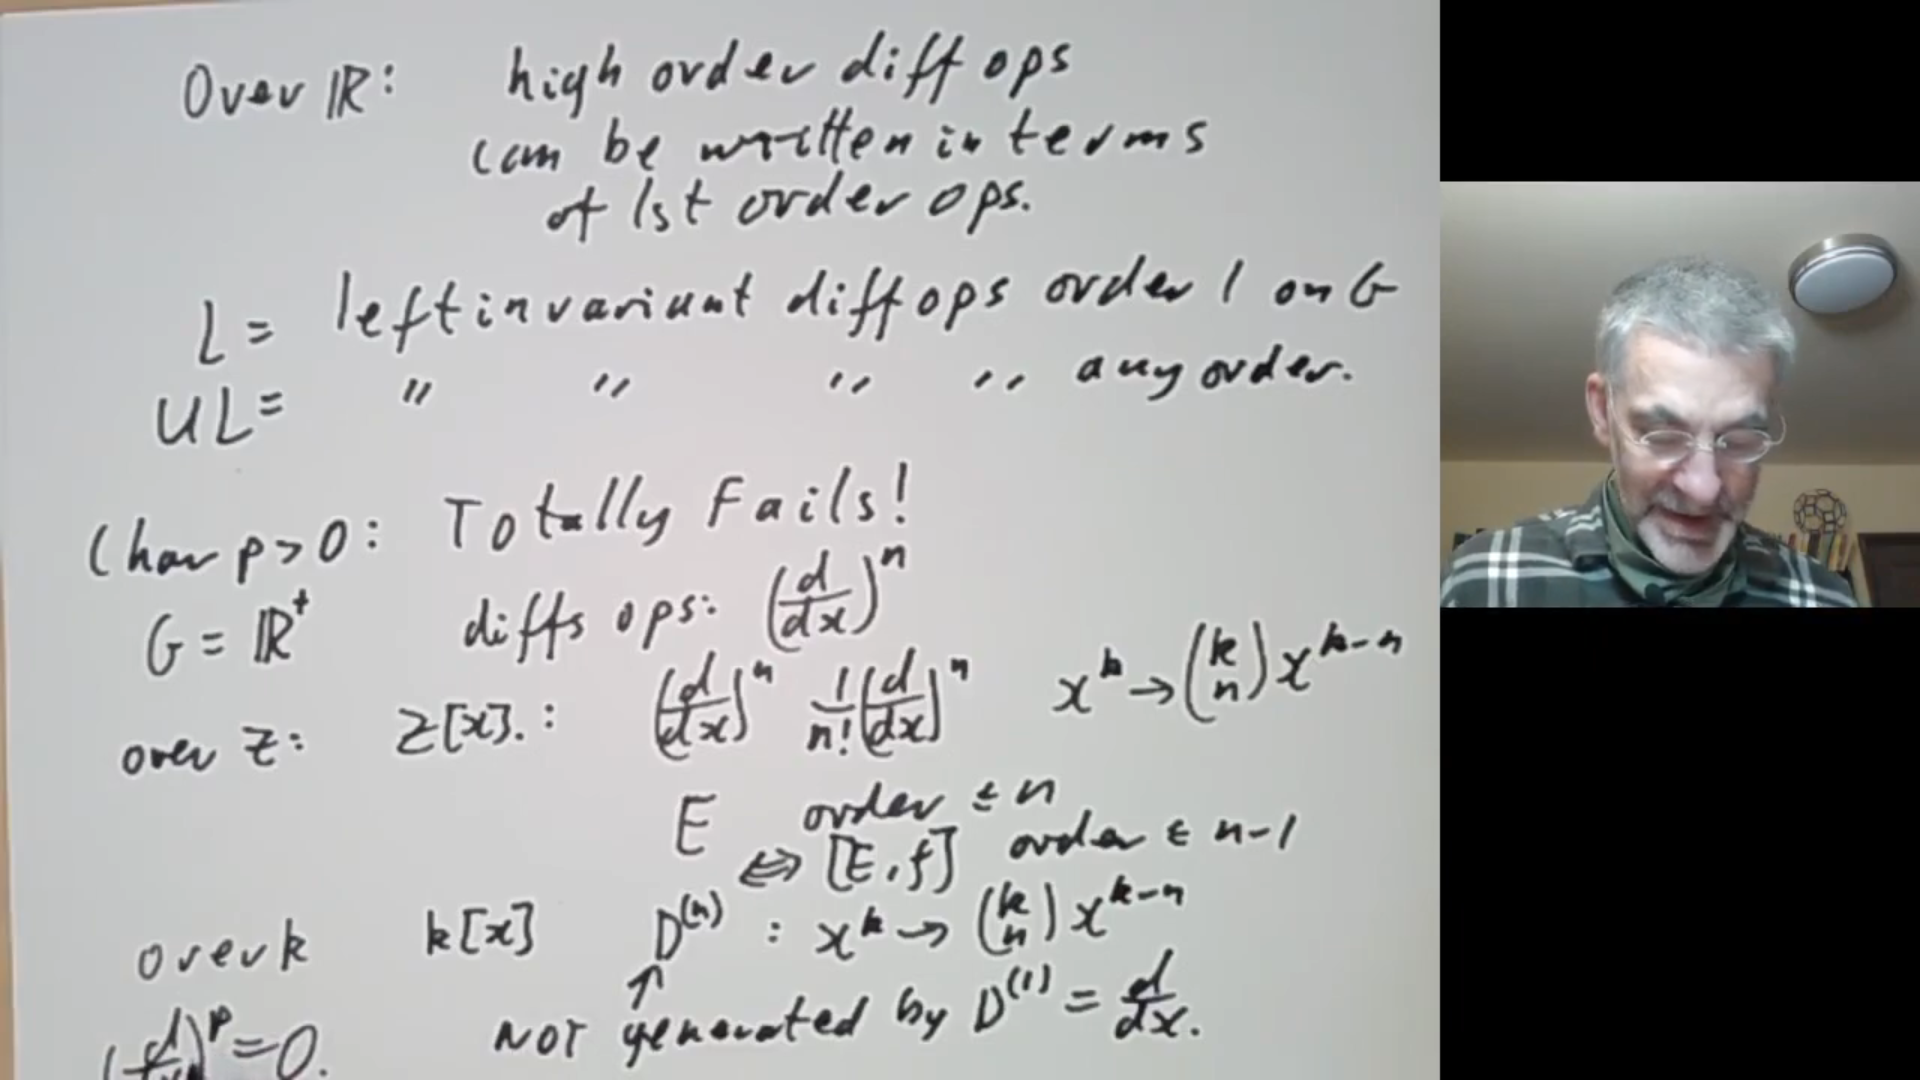 Over ℝ: high order diff ops
can be written in terms
of 1st order ops.
L = left invariant diff ops order 1 on G
UL = " " " " any order.
Char p > 0: Totally Fails!
G = ℝ⁺ diffs ops: (d/dx)ⁿ
over Z: Z[x].: (d/dx)ⁿ 1/n! (d/dx)ⁿ xᵏ → (k n) xᵏ⁻ⁿ
E order ≤ n
⇔ [E, f] order ≤ n-1
over k k[x] D⁽ⁿ⁾ : xᵏ → (k n) xᵏ⁻ⁿ
↑
(d/dx)ᵖ = 0. NOT generated by D⁽¹⁾ = d/dx.